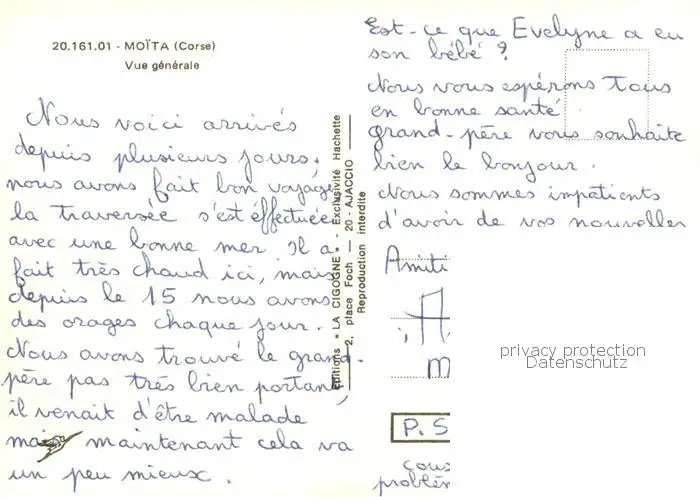 20.161.01 - MOÏTA (Corse)
Vue générale
Nous voici arrivés
depuis plusieurs jours,
nous avons fait bon voyage
la traversée s'est éffectuée
avec une bonne mer. Il a
fait très chaud ici, mais
depuis le 15 nous avons
des orages chaque jour.
Nous avons trouvé le grand-
père pas très bien portant,
il venait d'être malade
mais maintenant cela va
un peu mieux.
Editions « LA CIGOGNE » - Exclusivité Hachette
2, place Foch — 20 - AJACCIO
Reproduction interdite
Est-ce que Evelyne a eu
son bébé ?
Nous vous espérons Tous
en bonne santé
grand-père vous souhaite
bien le bonjour.
Nous sommes impatients
d'avoir de vos nouvelles
Amiti
P.S
privacy protection
Datenschutz